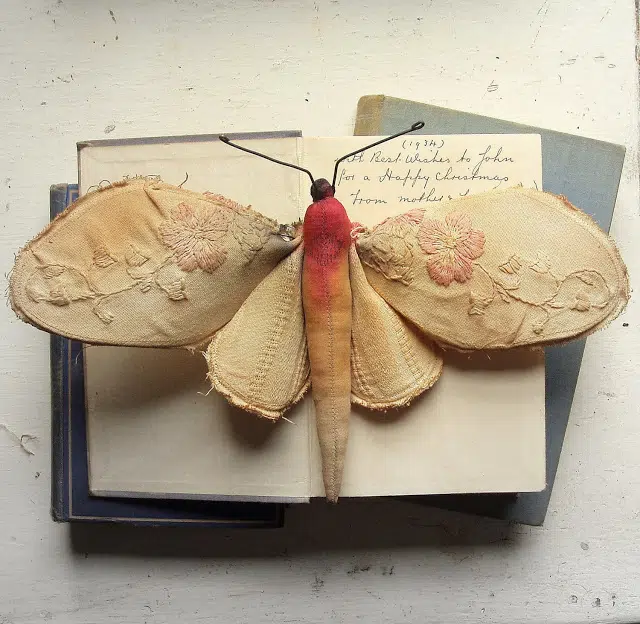 (1934)
Best Wishes to John
for a Happy Christmas
From mother &